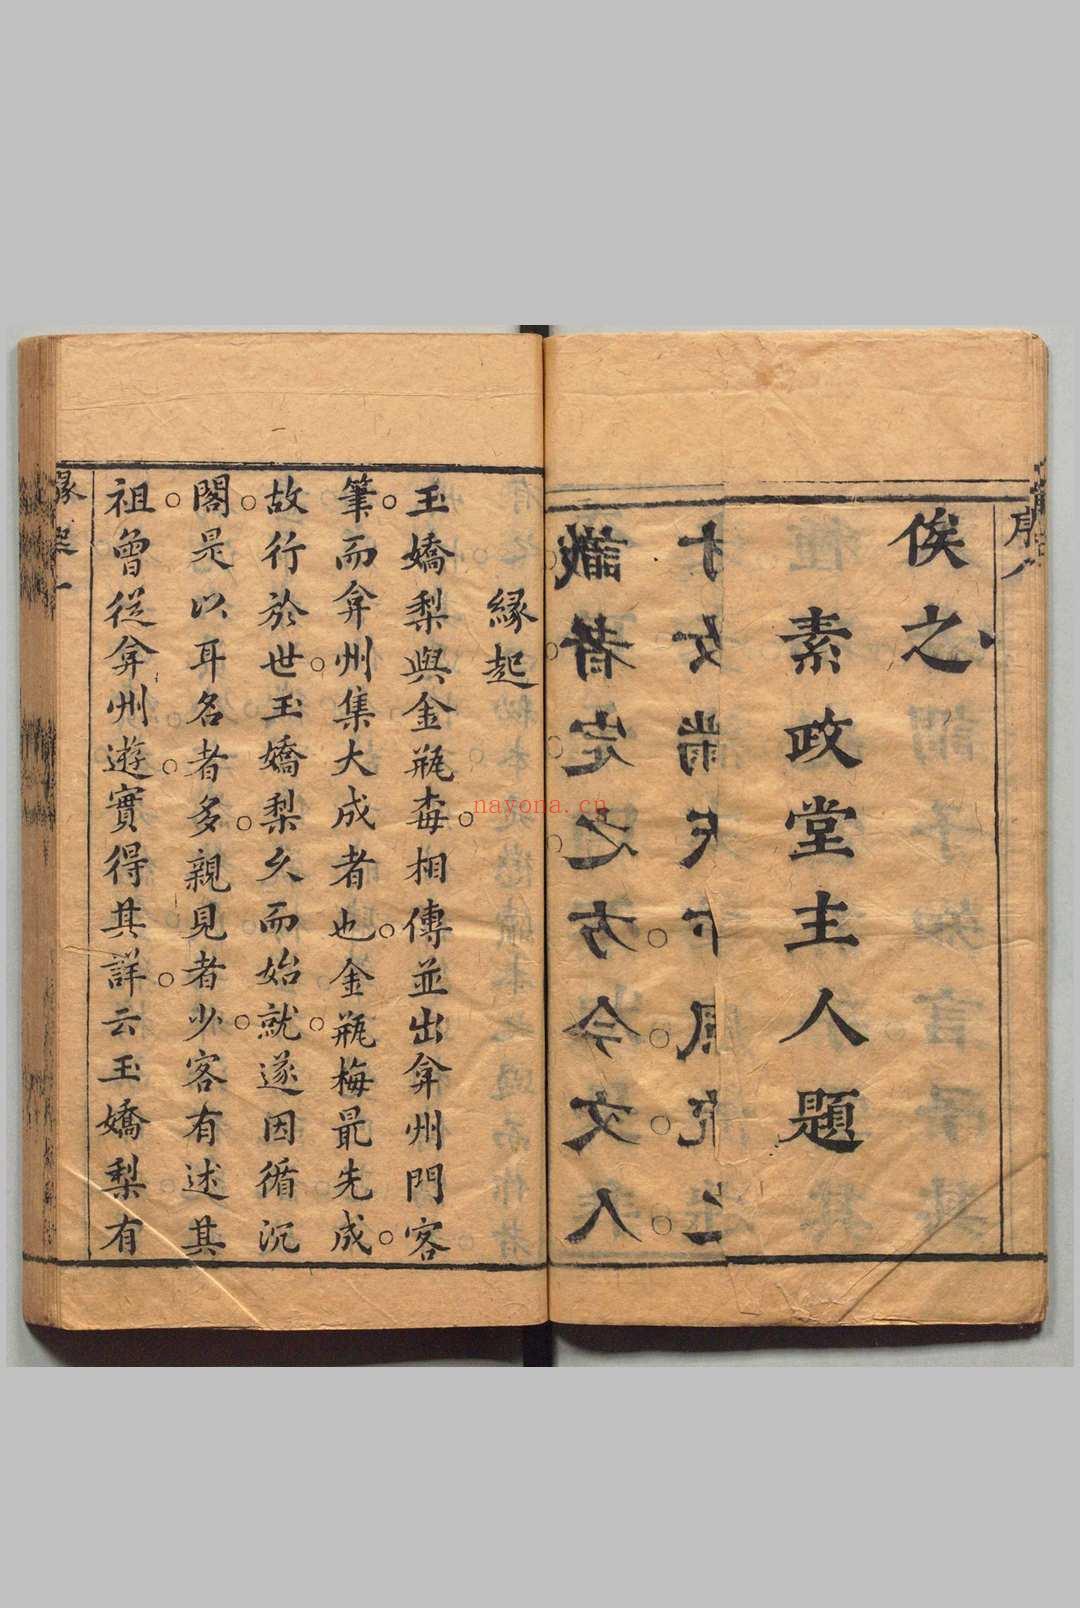 俟之
素政堂主人題
識者定之方今文人
緣起
玉嬌梨與金瓶梅相傳並出弇州門客
筆而弇州集大成者也金瓶梅最先成
故行於世玉嬌梨久而始就遂因循沉
閣是以耳名者多親見者少客有述其
祖曾從弇州遊實得其詳云玉嬌梨有
緣起一
nayona.cn